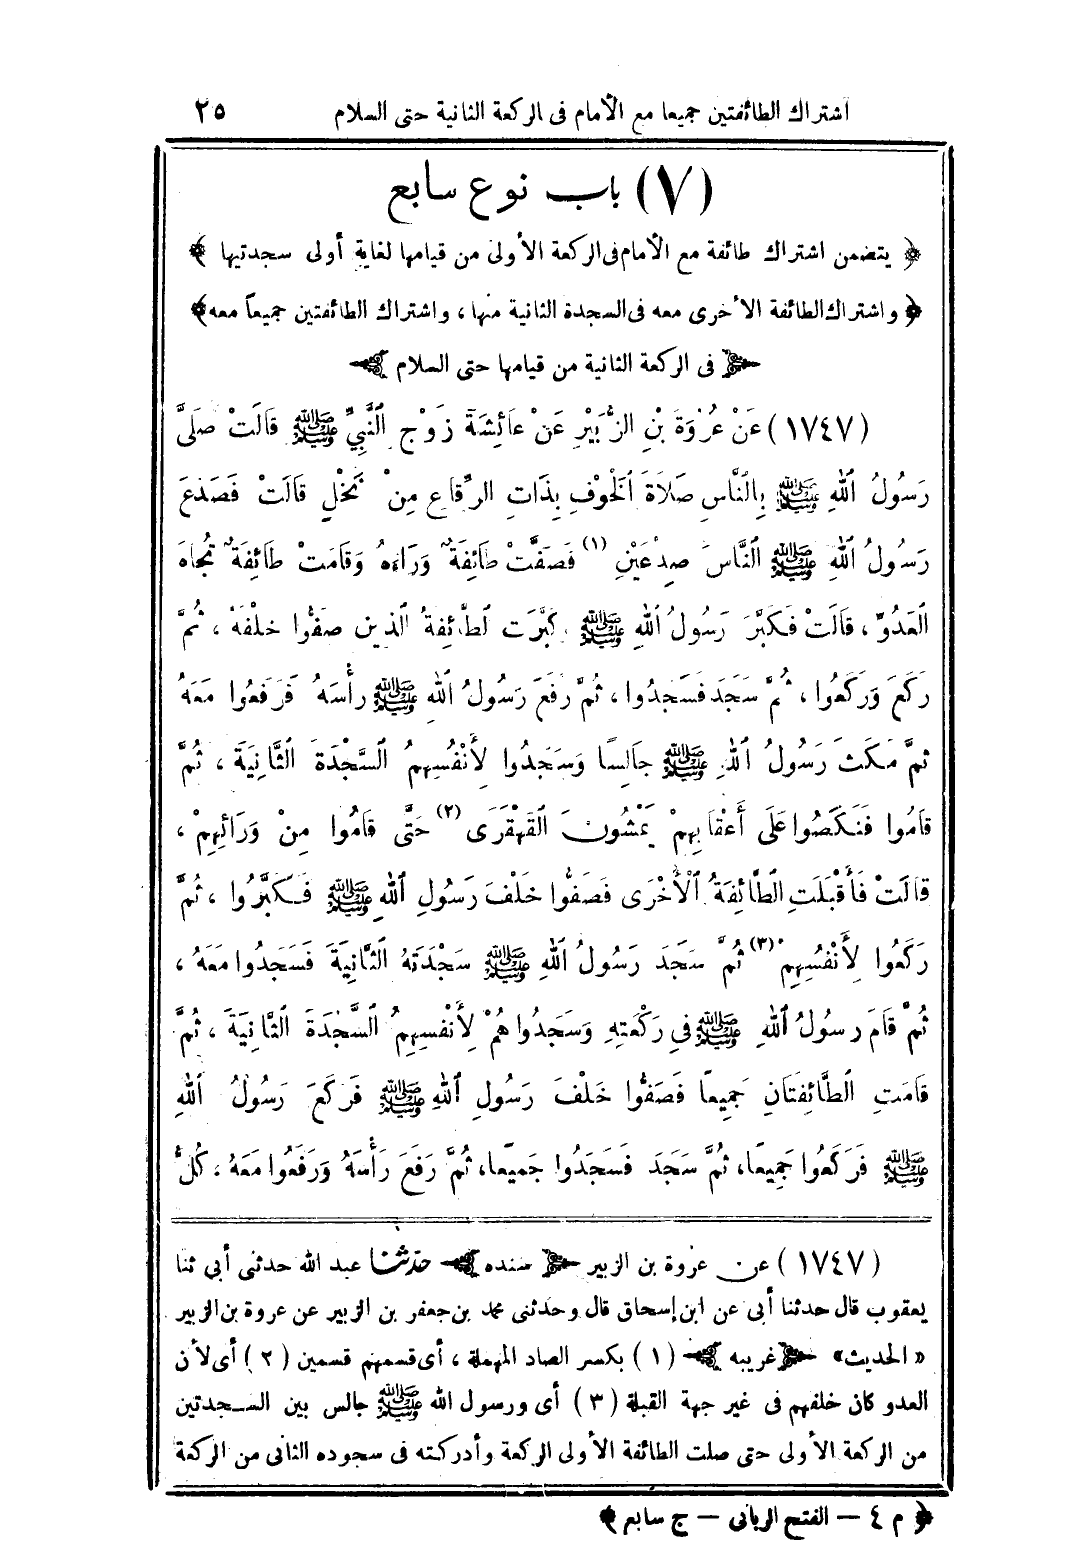 اشتراك الطائفتين جميعا مع الأمام فى الركعة الثانية حتى السلام ٢٥
(٧) باب نوع سابع
﴿ يتضمن اشتراك طائفة مع الأمام فى الركعة الأولى من قيامها لغاية أولى سجدتيها ﴾
﴿ واشتراك الطائفة الأخرى معه فى السجدة الثانية منها ، واشتراك الطائفتين جميعاً معه ﴾
﴿ فى الركعة الثانية من قيامها حتى السلام ﴾
(١٧٤٧) عَنْ عُرْوَةَ بْنِ الزُّبَيْرِ عَنْ عَائِشَةَ زَوْجِ النَّبِيِّ ﷺ قَالَتْ صَلَّى
رَسُولُ اللهِ ﷺ بِالنَّاسِ صَلَاةَ الْخَوْفِ بِذَاتِ الرِّقَاعِ مِنْ نَخْلٍ قَالَتْ فَصَدَعَ
رَسُولُ اللهِ ﷺ النَّاسَ صِدْعَيْنِ (١) فَصَفَّتْ طَائِفَةٌ وَرَاءَهُ وَقَامَتْ طَائِفَةٌ تُجَاهَ
الْعَدُوِّ ، قَالَتْ فَكَبَّرَ رَسُولُ اللهِ ﷺ كَبَّرَتِ الطَّائِفَةُ الَّذِينَ صَفُّوا خَلْفَهُ ، ثُمَّ
رَكَعَ وَرَكَعُوا ، ثُمَّ سَجَدَ فَسَجَدُوا ، ثُمَّ رَفَعَ رَسُولُ اللهِ ﷺ رَأْسَهُ فَرَفَعُوا مَعَهُ
ثُمَّ مَكَثَ رَسُولُ اللهِ ﷺ جَالِسًا وَسَجَدُوا لِأَنْفُسِهِمُ السَّجْدَةَ الثَّانِيَةَ ، ثُمَّ
قَامُوا فَنَكَصُوا عَلَى أَعْقَابِهِمْ يَمْشُونَ الْقَهْقَرَى (٢) حَتَّى قَامُوا مِنْ وَرَائِهِمْ ،
قَالَتْ فَأَقْبَلَتِ الطَّائِفَةُ الْأُخْرَى فَصَفُّوا خَلْفَ رَسُولِ اللهِ ﷺ فَكَبَّرُوا ، ثُمَّ
رَكَعُوا لِأَنْفُسِهِمْ (٣) ثُمَّ سَجَدَ رَسُولُ اللهِ ﷺ سَجْدَتَهُ الثَّانِيَةَ فَسَجَدُوا مَعَهُ ،
ثُمَّ قَامَ رَسُولُ اللهِ ﷺ فِي رَكْعَتِهِ وَسَجَدُوا هُمْ لِأَنْفُسِهِمُ السَّجْدَةَ الثَّانِيَةَ ، ثُمَّ
قَامَتِ الطَّائِفَتَانِ جَمِيعًا فَصَفُّوا خَلْفَ رَسُولِ اللهِ ﷺ فَرَكَعَ رَسُولُ اللهِ
ﷺ فَرَكَعُوا جَمِيعًا، ثُمَّ سَجَدَ فَسَجَدُوا جَمِيعًا، ثُمَّ رَفَعَ رَأْسَهُ وَرَفَعُوا مَعَهُ ، كُلُّ
(١٧٤٧) عن عروة بن الزبير ﴿ سنده ﴾ حدثنا عبد الله حدثنى أبي ثنا
يعقوب قال حدثنا أبى عن ابن إسحاق قال وحدثنى محمد بن جعفر بن الزبير عن عروة بن الزبير
« الحديث » ﴿ غريبه ﴾ (١) بكسر الصاد المهملة ، أى قسمهم قسمين (٢) أى لأن
العدو كان خلفهم فى غير جهة القبلة (٣) أى ورسول الله ﷺ جالس بين السجدتين
من الركعة الأولى حتى صلت الطائفة الأولى الركعة وأدركته فى سجوده الثانى من الركعة
﴿ م ٤ — الفتح الربانى — ج سابع ﴾